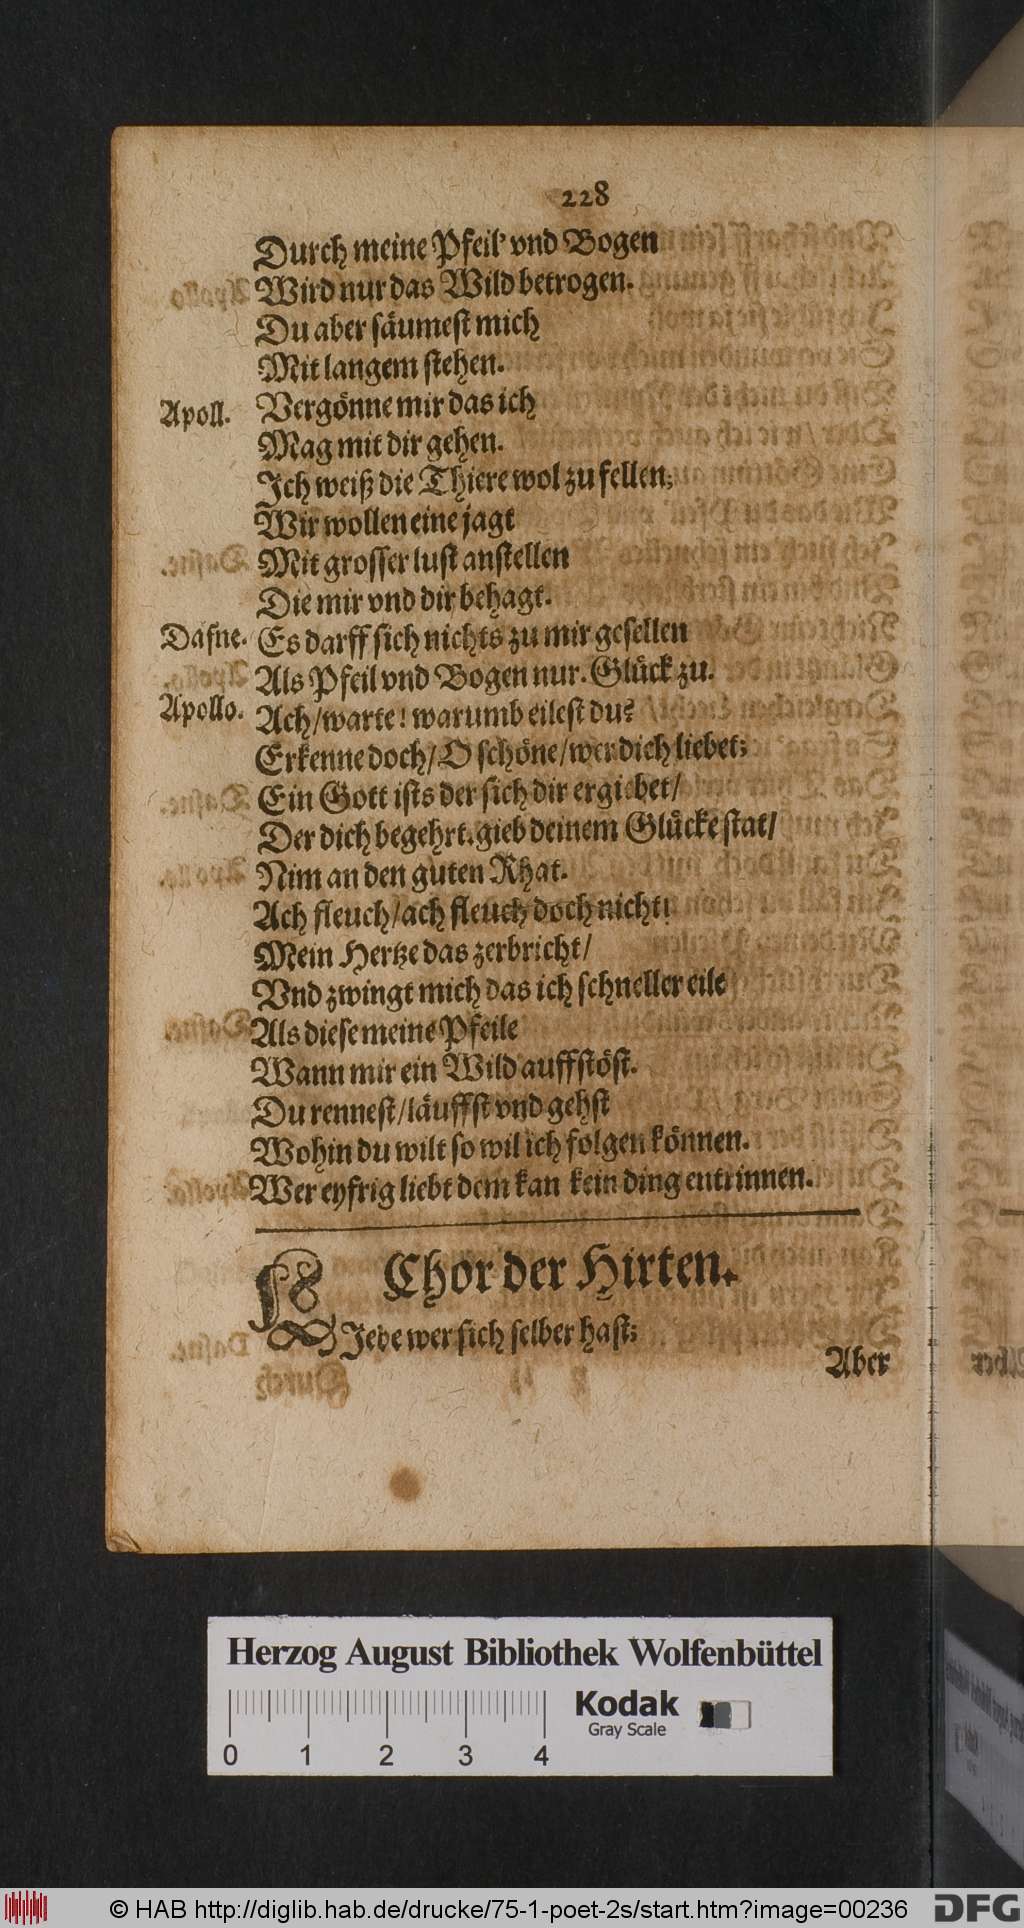 228
Durch meine Pfeil' vnd Bogen
Wird nur das Wild betrogen.
Du aber säumest mich
Mit langem stehen.
Apoll. Vergönne mir das ich
Mag mit dir gehen.
Ich weiß die Thiere wol zu fellen;
Wir wollen eine jagt
Mit grosser lust anstellen
Die mir vnd dir behagt.
Dafne. Es darff sich nichts zu mir gesellen
Als Pfeil vnd Bogen nur. Glück zu.
Apollo. Ach/warte! warumb eilest du?
Erkenne doch/O schöne/wer dich liebet;
Ein Gott ists der sich dir ergiebet/
Der dich begehrt. gieb deinem Glücke stat/
Nim an den guten Rhat.
Ach fleuch/ach fleuch doch nicht!
Mein Hertze das zerbricht/
Vnd zwingt mich das ich schneller eile
Als diese meine Pfeile
Wann mir ein Wild auffstöst.
Du rennest/läuffst vnd gehst
Wohin du wilt so wil ich folgen können.
Wer eyfrig liebt dem kan kein ding entrinnen.
Chor der Hirten.
LIebe wer sich selber hast;
Aber
Herzog August Bibliothek Wolfenbüttel
Kodak
Gray Scale
0 1 2 3 4
© HAB http://diglib.hab.de/drucke/75-1-poet-2s/start.htm?image=00236
DFG